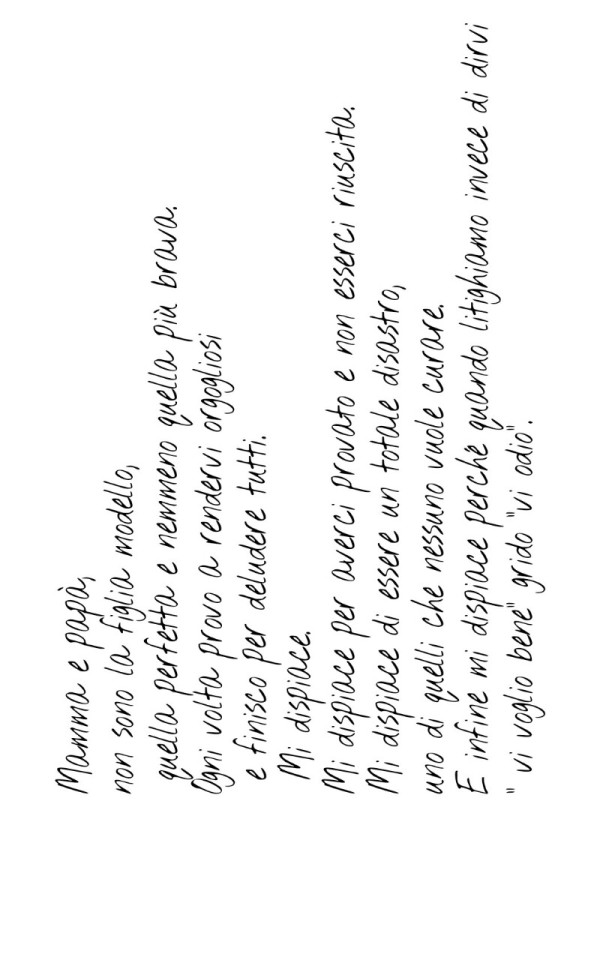 Mamma e papà,
non sono la figlia modello,
quella perfetta e nemmeno quella più brava.
Ogni volta provo a rendervi orgogliosi
e finisco per deludere tutti.
Mi dispiace.
Mi dispiace per averci provato e non esserci riuscita.
Mi dispiace di essere un totale disastro,
uno di quelli che nessuno vuole curare.
E infine mi dispiace perchè quando litighiamo invece di dirvi
" vi voglio bene" grido "vi odio".